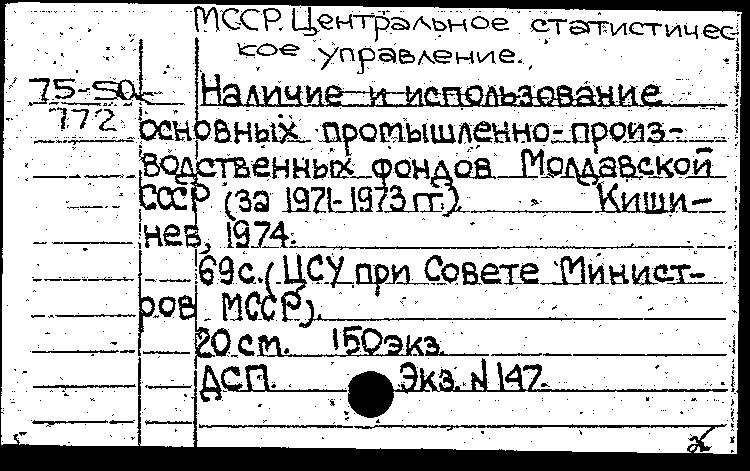 МССР. Центральное статистичес
кое управление.
75-50
772
Наличие и использование
основных промышленно-произ-
водственных фондов Молдавской
СССР (за 1971-1973 гг.) Киши-
нев, 1974.
69 с. (ЦСУ при Совете Минист-
ров МССР).
20 см. 150 экз.
ДСП. Экз. N 147.